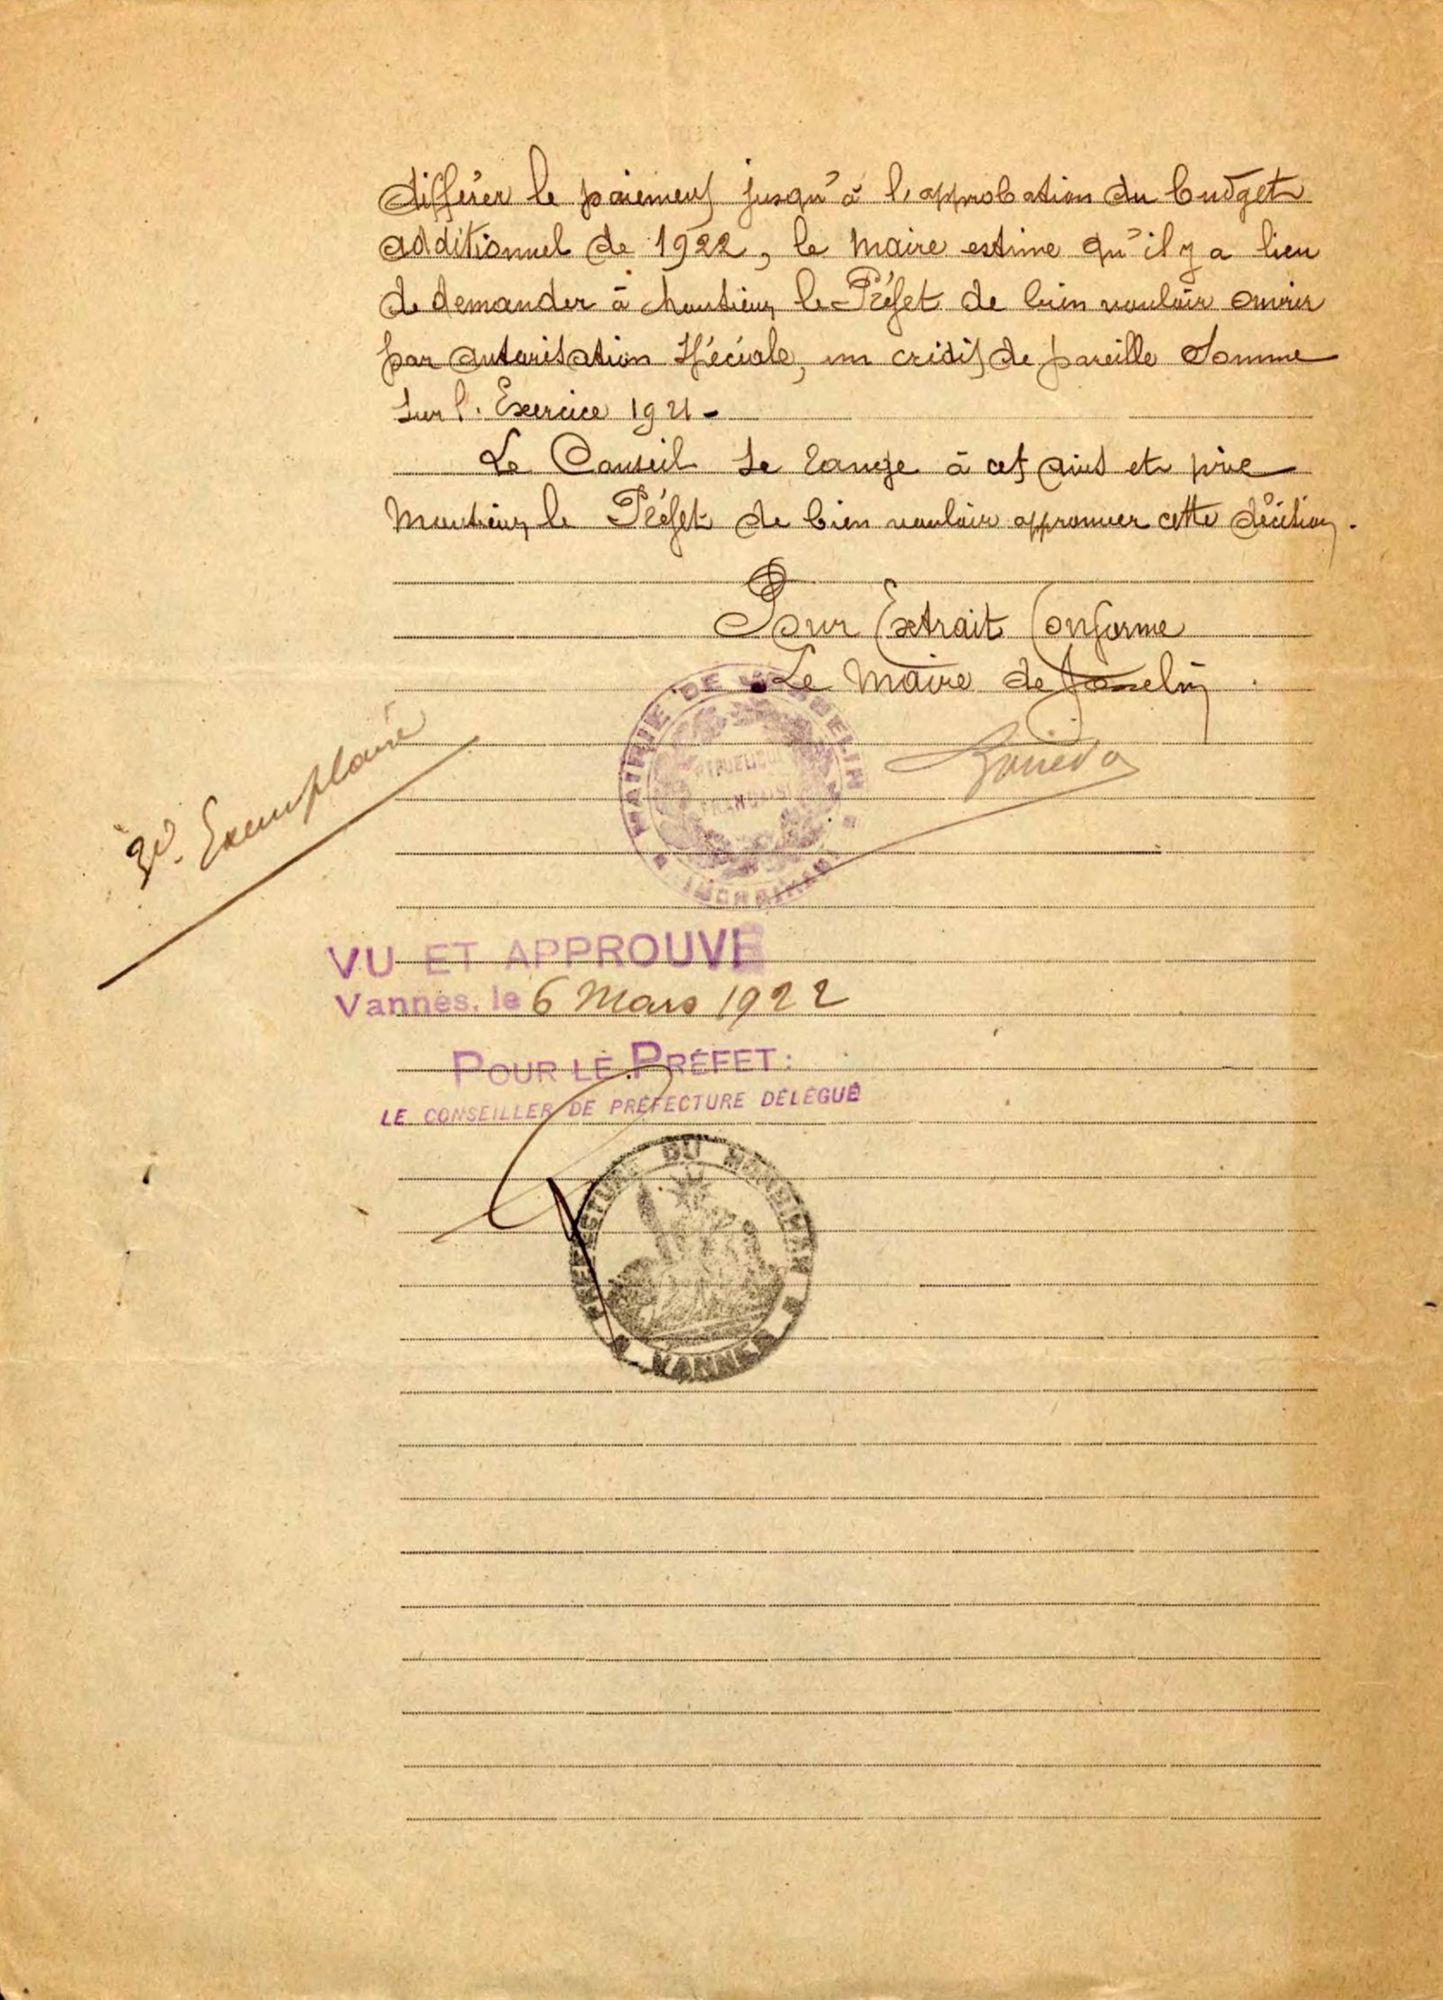 différer le paiement jusqu'à l'approbation du budget
additionnel de 1922, le Maire estime qu'il y a lieu
de demander à Monsieur le Préfet de bien vouloir ouvrir
par autorisation spéciale, un crédit de pareille somme
sur l'Exercice 1921 -
Le Conseil se range à cet avis et prie
Monsieur le Préfet de bien vouloir approuver cette décision.
Pour Extrait Conforme
Le Maire de Josselin
MAIRIE DE JOSSELIN
RÉPUBLIQUE
FRANÇAISE
(MORBIHAN)
Exemplaire
VU ET APPROUVÉ
Vannes, le 6 Mars 1922
POUR LE PRÉFET:
LE CONSEILLER DE PRÉFECTURE DÉLÉGUÉ
PRÉFECTURE DU MORBIHAN
VANNES